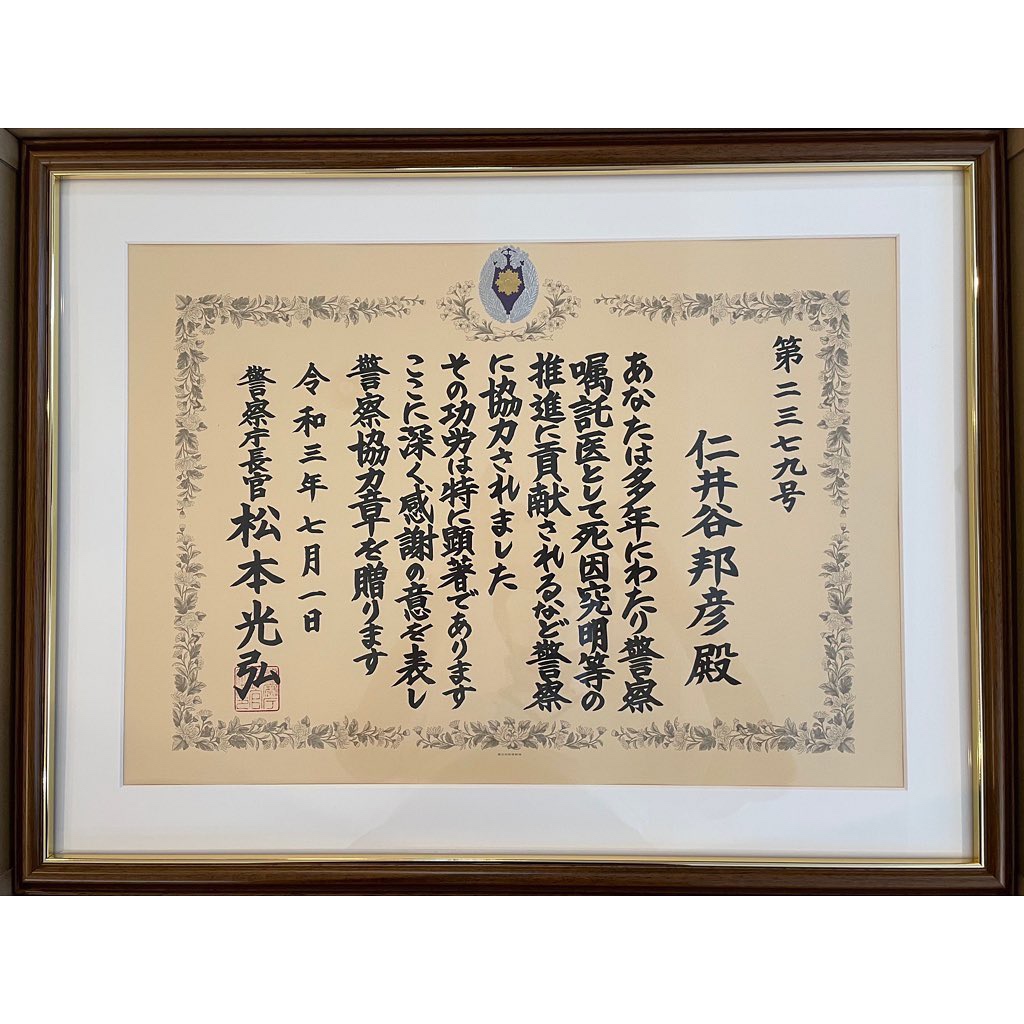 第二三七九号
仁井谷邦彦殿
あなたは多年にわたり警察
嘱託医として死因究明等の
推進に貢献されるなど警察
に協力されました
その功労は特に顕著であります
ここに深く感謝の意を表し
警察協力章を贈ります
令和三年七月一日
警察庁長官松本光弘